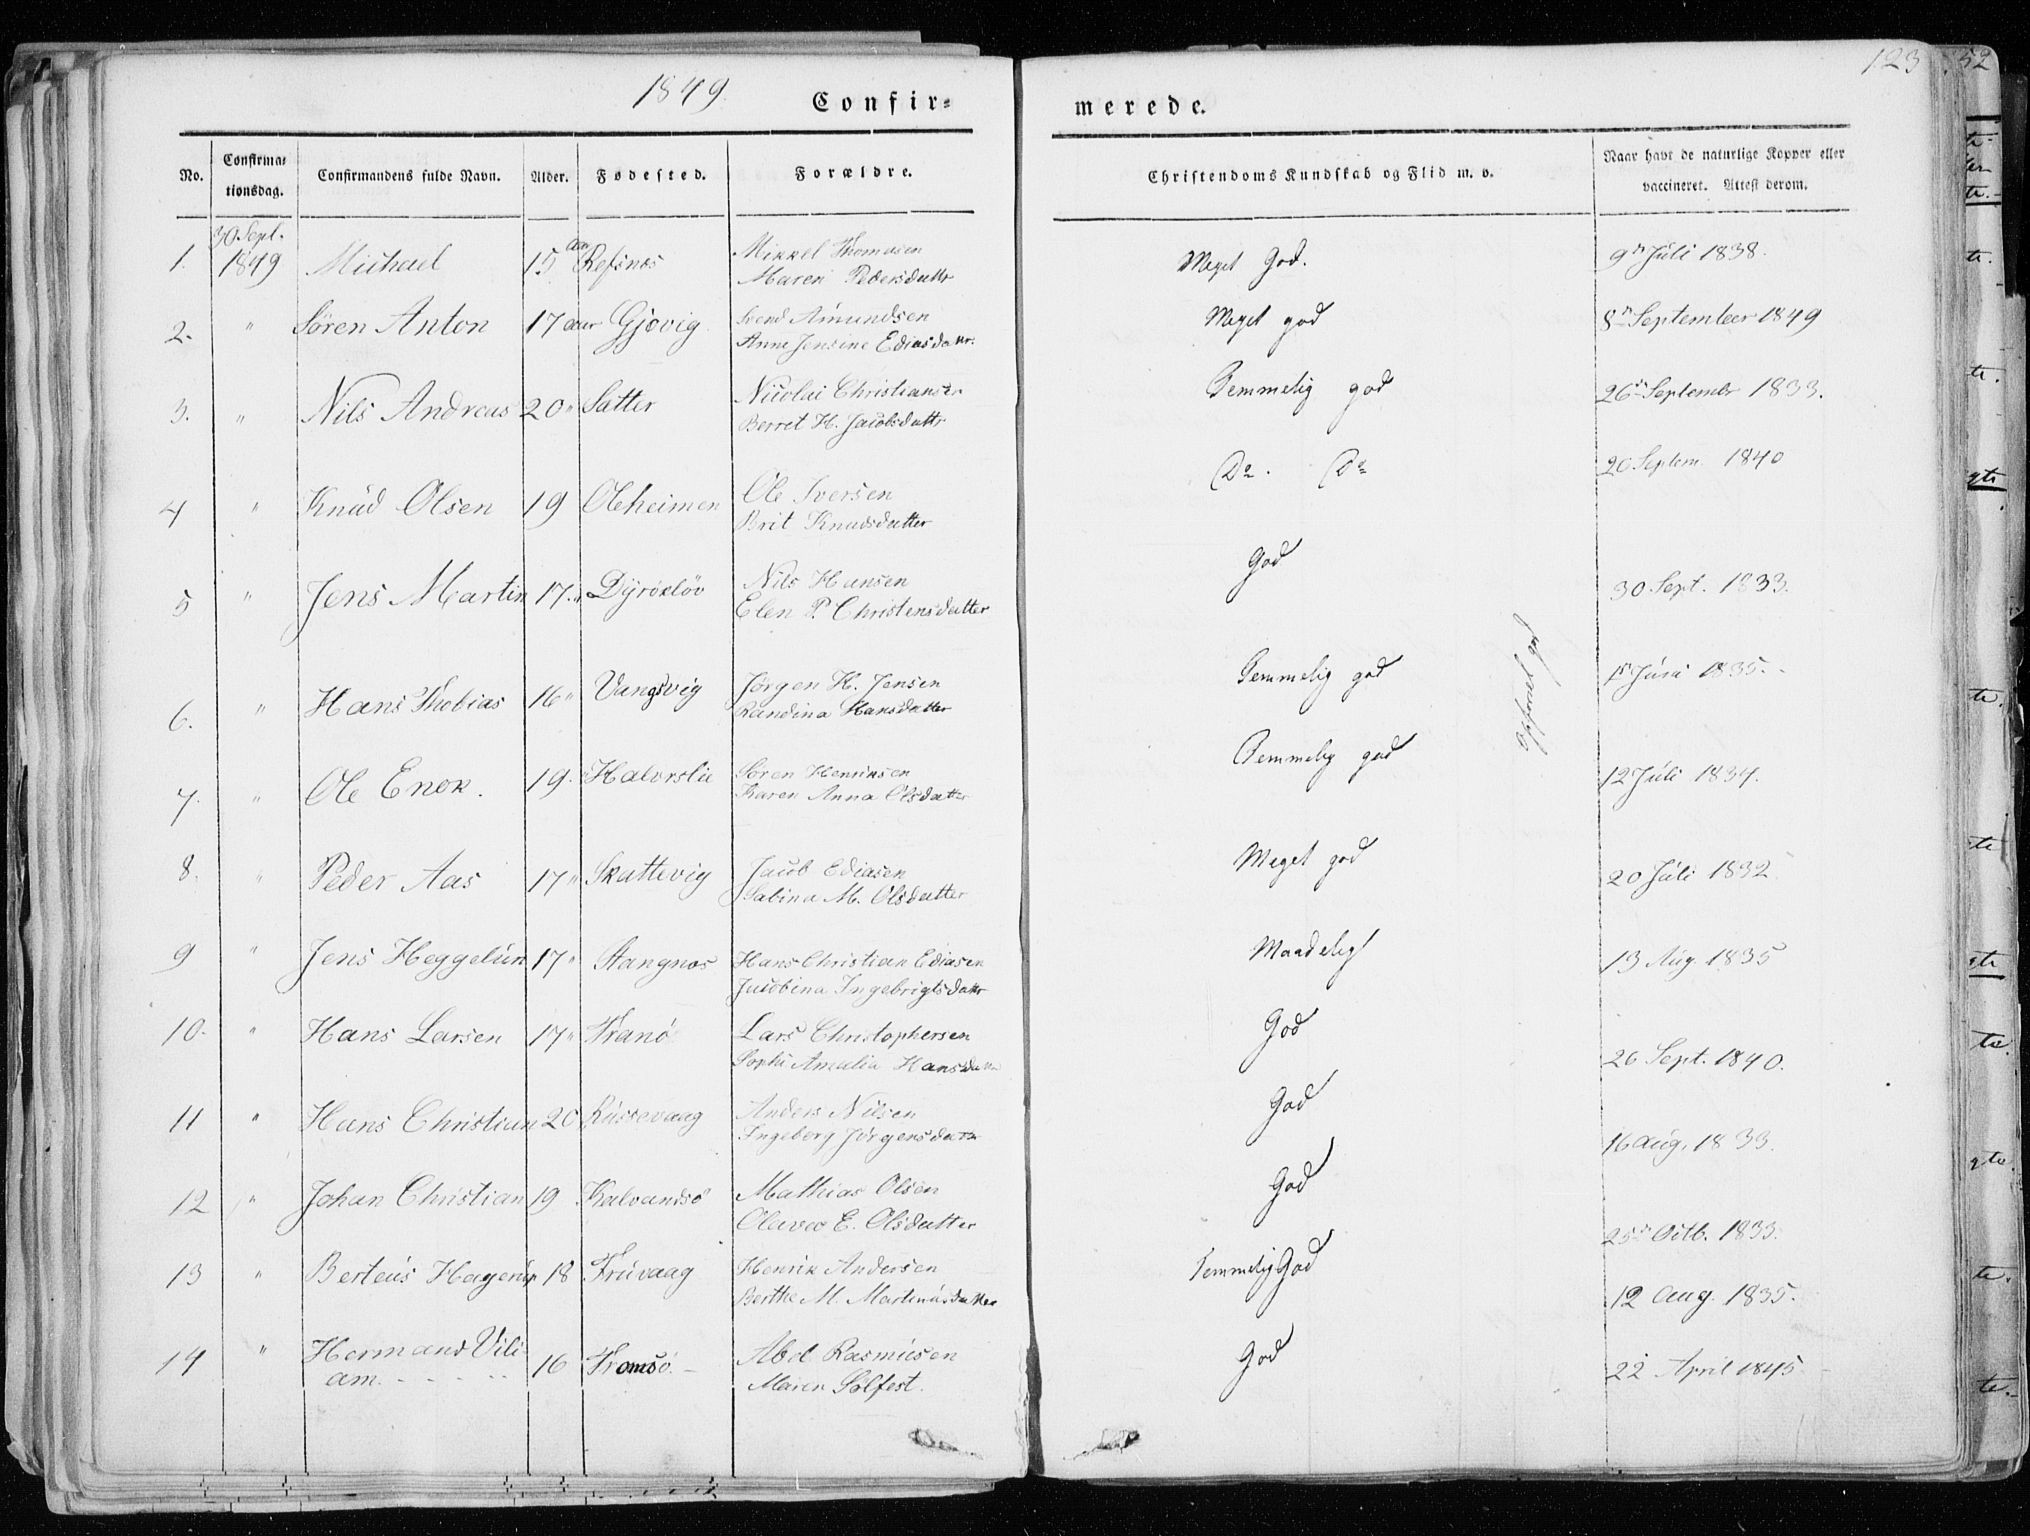 1849. Confir= merede. 123
No. Confirma= tionsdag. Confirmandens fulde Navn. Alder. Fødested. Forældre. Christendoms Kundskab og Flid m. v. Naar havt de naturlige Kopper eller vaccineret. Attest derom.
30 Sept.
1. 1849 Michael 15 aar Refsnes Mikkel Thomasen Meget God. 9n Juli 1838.
Maren Pedersdattr
2. " Søren Anton 17 aar Gjøvig Svend Amundsen Meget god 8n September 1849
Anne Jensine Ediasdattr.
3. " Nils Andreas 20 " Satter Nicolai Christiansen Temmelig god 26n Septembr 1833.
Berret H. Jacobsdattr
4 " Knud Olsen 19 Oleheimen Ole Iversen Do. Do 20 Septem. 1840
Brit Knudsdatter
5 " Jens Martin 17 " Dyrøkløv Nils Hansen God 30 Sept. 1833.
Elen P. Christensdatter
6. " Hans Thobias 16 " Vangsvig Jørgen H. Jensen Temmelig god 1835.
Randina Hansdatter
7. " Ole Enok. 19. Halvorslie Søren Henriksen Temmelig god 12 Juli 1834.
Karen Anna Olsdatter
8. " Peder Aas 17 " Skattevig Jacob Ediasen Meget god 20 Juli 1832
Sabina M. Olsdatter
9 " Jens Heggelun 17 " Stangnes Hans Christian Ediasen Maadelig 13 Aug. 1835
Jacobina Ingebrigtsdattr
10. " Hans Larsen 17 " Tranø Lars Christophersen God 26 Sept. 1840.
Sophi Amalia Hansdatter
11 " Hans Christian 20 Russevaag Anders Nilsen God 16 Aug. 1833.
Ingeberg Jørgensdattr
12 " Johan Christian 19 Kalvandsø Mathias Olsen God 25n Octb. 1833.
Olava E. Olsdatter
13 " Berteus Hagerup 18 Truvaag Henrik Andersen Temmelig God 12 Aug. 1835.
Berthe M. Martinusdatter
14 " Hermand Vili- 16 Tromsø. Abel Rasmusen God 22 April 1845
am. Maren Solfest.